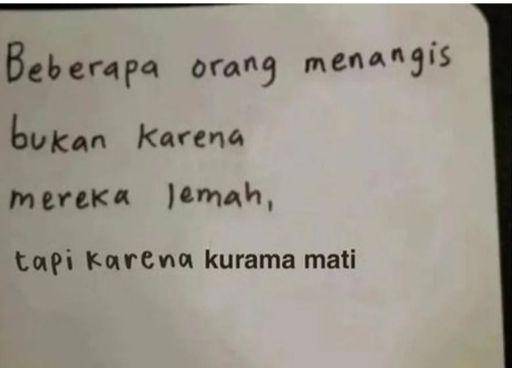 Beberapa orang menangis
bukan karena
mereka lemah,
tapi karena kurama mati